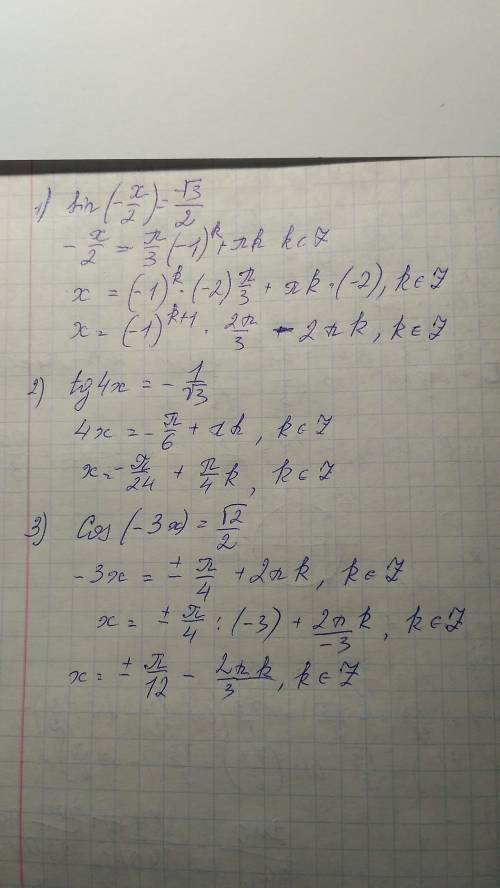 1) sin(-x/2) = √3/2
-x/2 = π/3 (-1)^k + πk k∈Z
x = (-1)^k · (-2) π/3 + πk · (-2), k∈Z
x = (-1)^(k+1) · 2π/3 - 2πk, k∈Z
2) tg 4x = - 1/√3
4x = - π/6 + πk, k∈Z
x = - π/24 + π/4 k, k∈Z
3) Cos (-3x) = √2/2
-3x = ± π/4 + 2πk, k∈Z
x = ± π/4 : (-3) + 2πk/-3, k∈Z
x = ± π/12 - 2πk/3, k∈Z